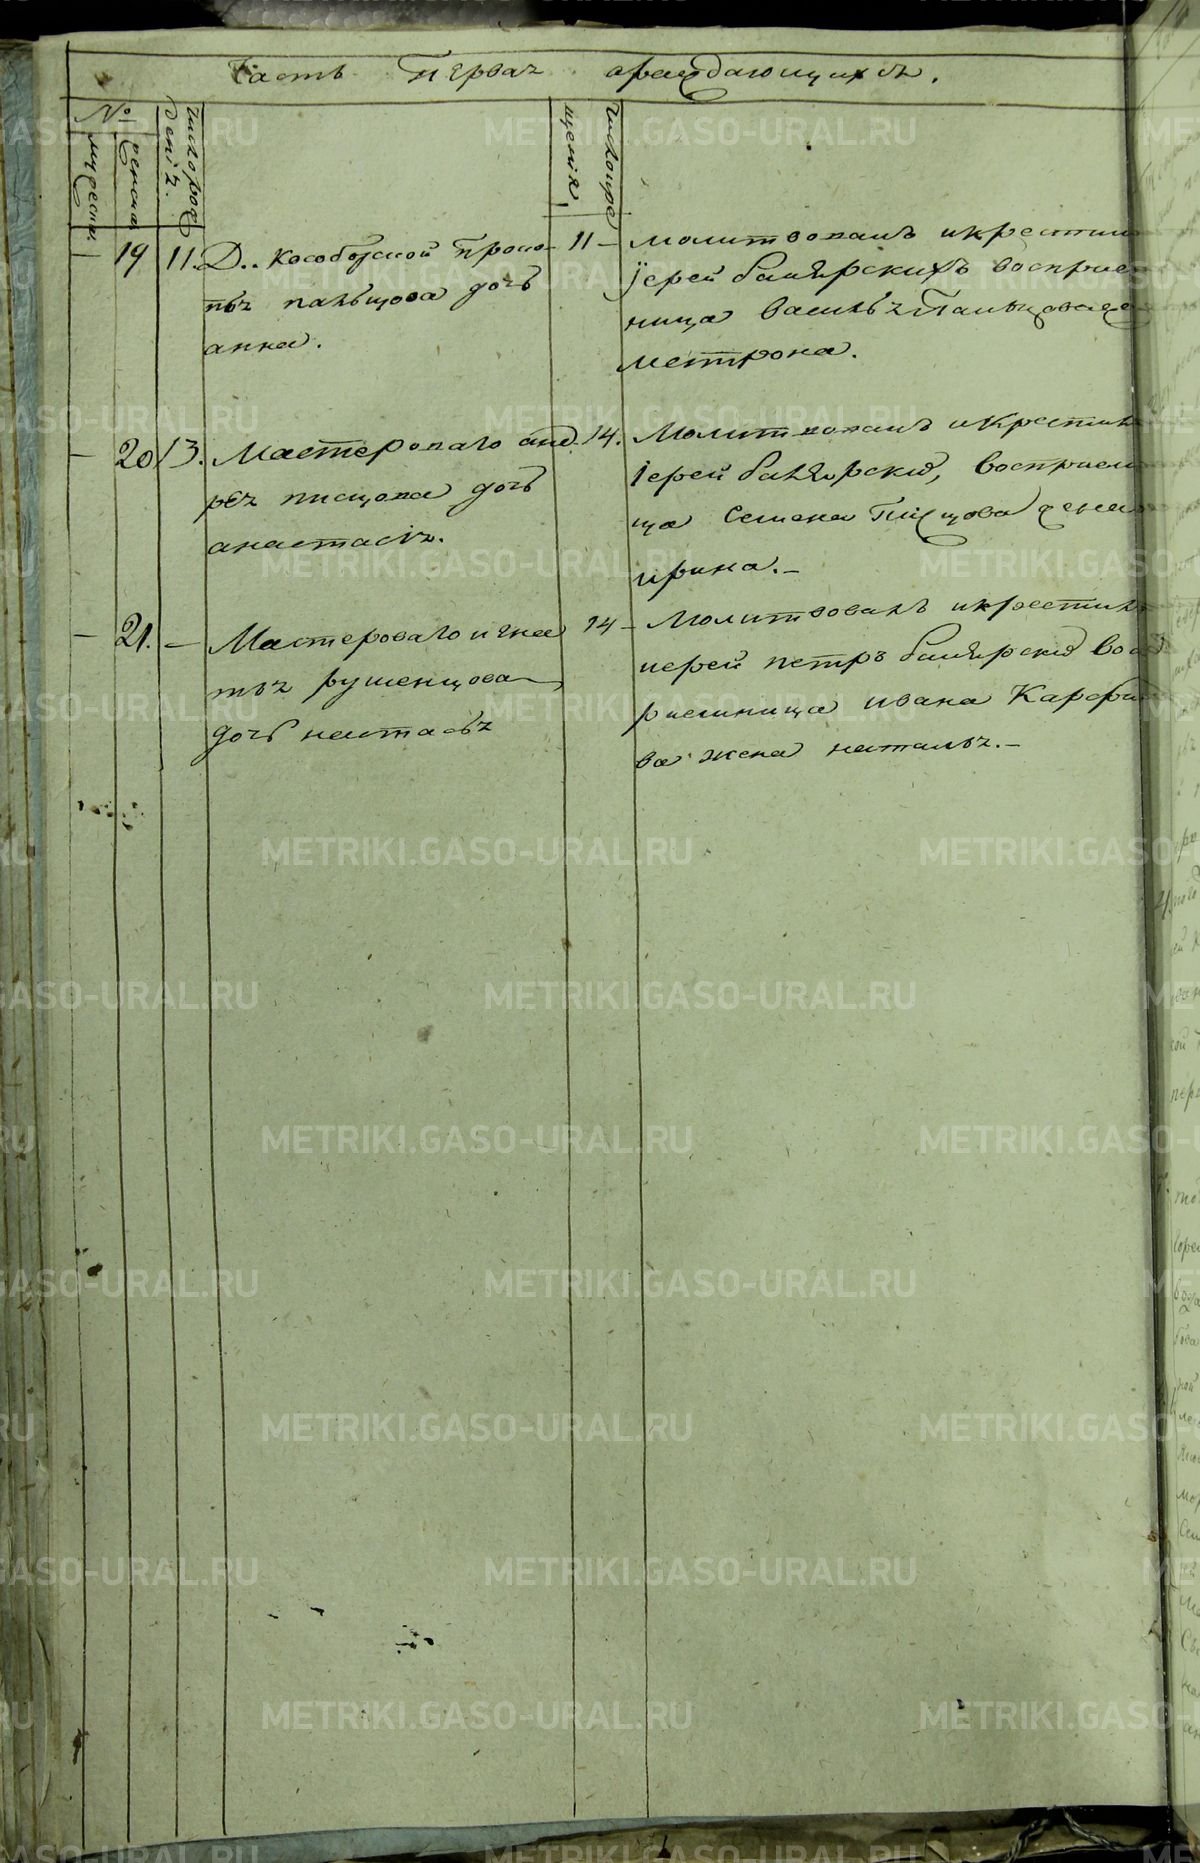 Часть Первая ораждающихся.
№
мужеска
женска
число рож
денія.
число кре
щенія
19 11. Д.. Кособоцкой Проко
пья пальцова дочь
анна.
11 – молитвовалъ и крестил
Іерей баляирскихъ восприем
ница василья Пальцова же
метрона.
20 13. Мастероваго анд
рея писцова дочь
анастасія.
14. Молитвовалъ и крестил
Іерей баляирский, восприемн
ца семена Писцова жена
ирина. –
21. – Мастероваго игна
тья рушенцова
дочь настасья
14 – Молитвовалъ и крестилъ
иерей петръ баляирский вос
риемница ивана Карфи
ва жена наталья. –
METRIKI.GASO-URAL.RU